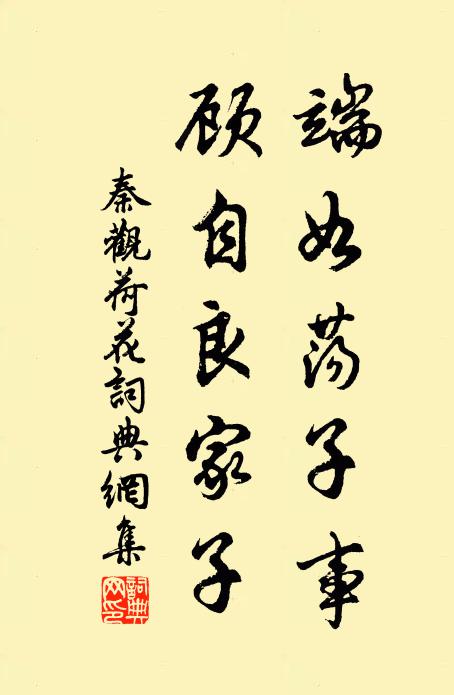 端如荡子事
顾自良家子
秦觀荷花詞典網集
詞典网印